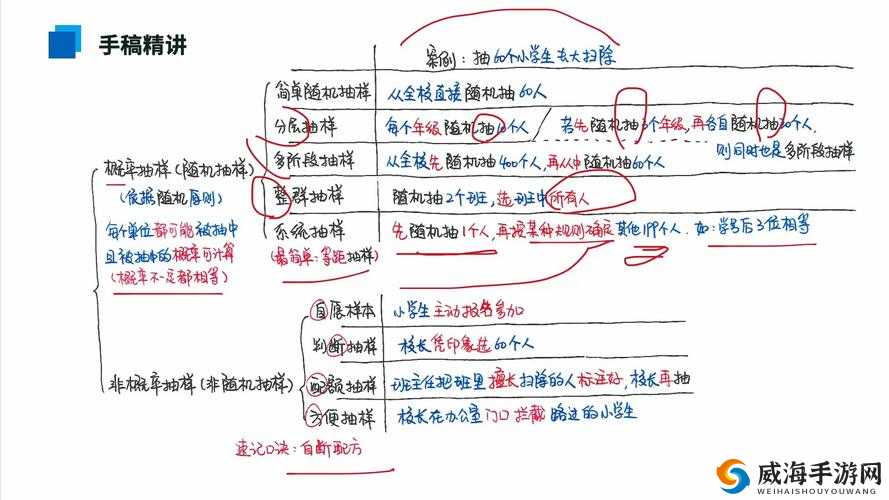 手稿精讲
案例：抽60个小学生去大扫除
简单随机抽样 从全校直接随机抽60人
分层抽样 每个年级随机抽10个人 / 若先随机抽3个年级，再各自随机抽20个人，
则同时也是多阶段抽样
多阶段抽样 从全校先随机抽400个人，再从中随机抽60个人
概率抽样（随机抽样）
（依据随机原则）
每个单位都可能被抽中
且被抽中的概率可计算
（概率不一定都相等）
整群抽样 随机抽2个班，选班中所有人
系统抽样 先随机抽1个人，再按某种规则确定其他199个人，如：学号后3位相等
（最简单：等距抽样）
自愿样本 小学生主动报名参加
判断抽样 校长凭印象选60个人
非概率抽样（非随机抽样） 配额抽样 班主任把班里擅长扫除的人标注好，校长再抽
方便抽样 校长在办公室门口拦截路过的小学生
速记口诀：自断配方
威海手游网
WEIHAISHOUYOUWANG